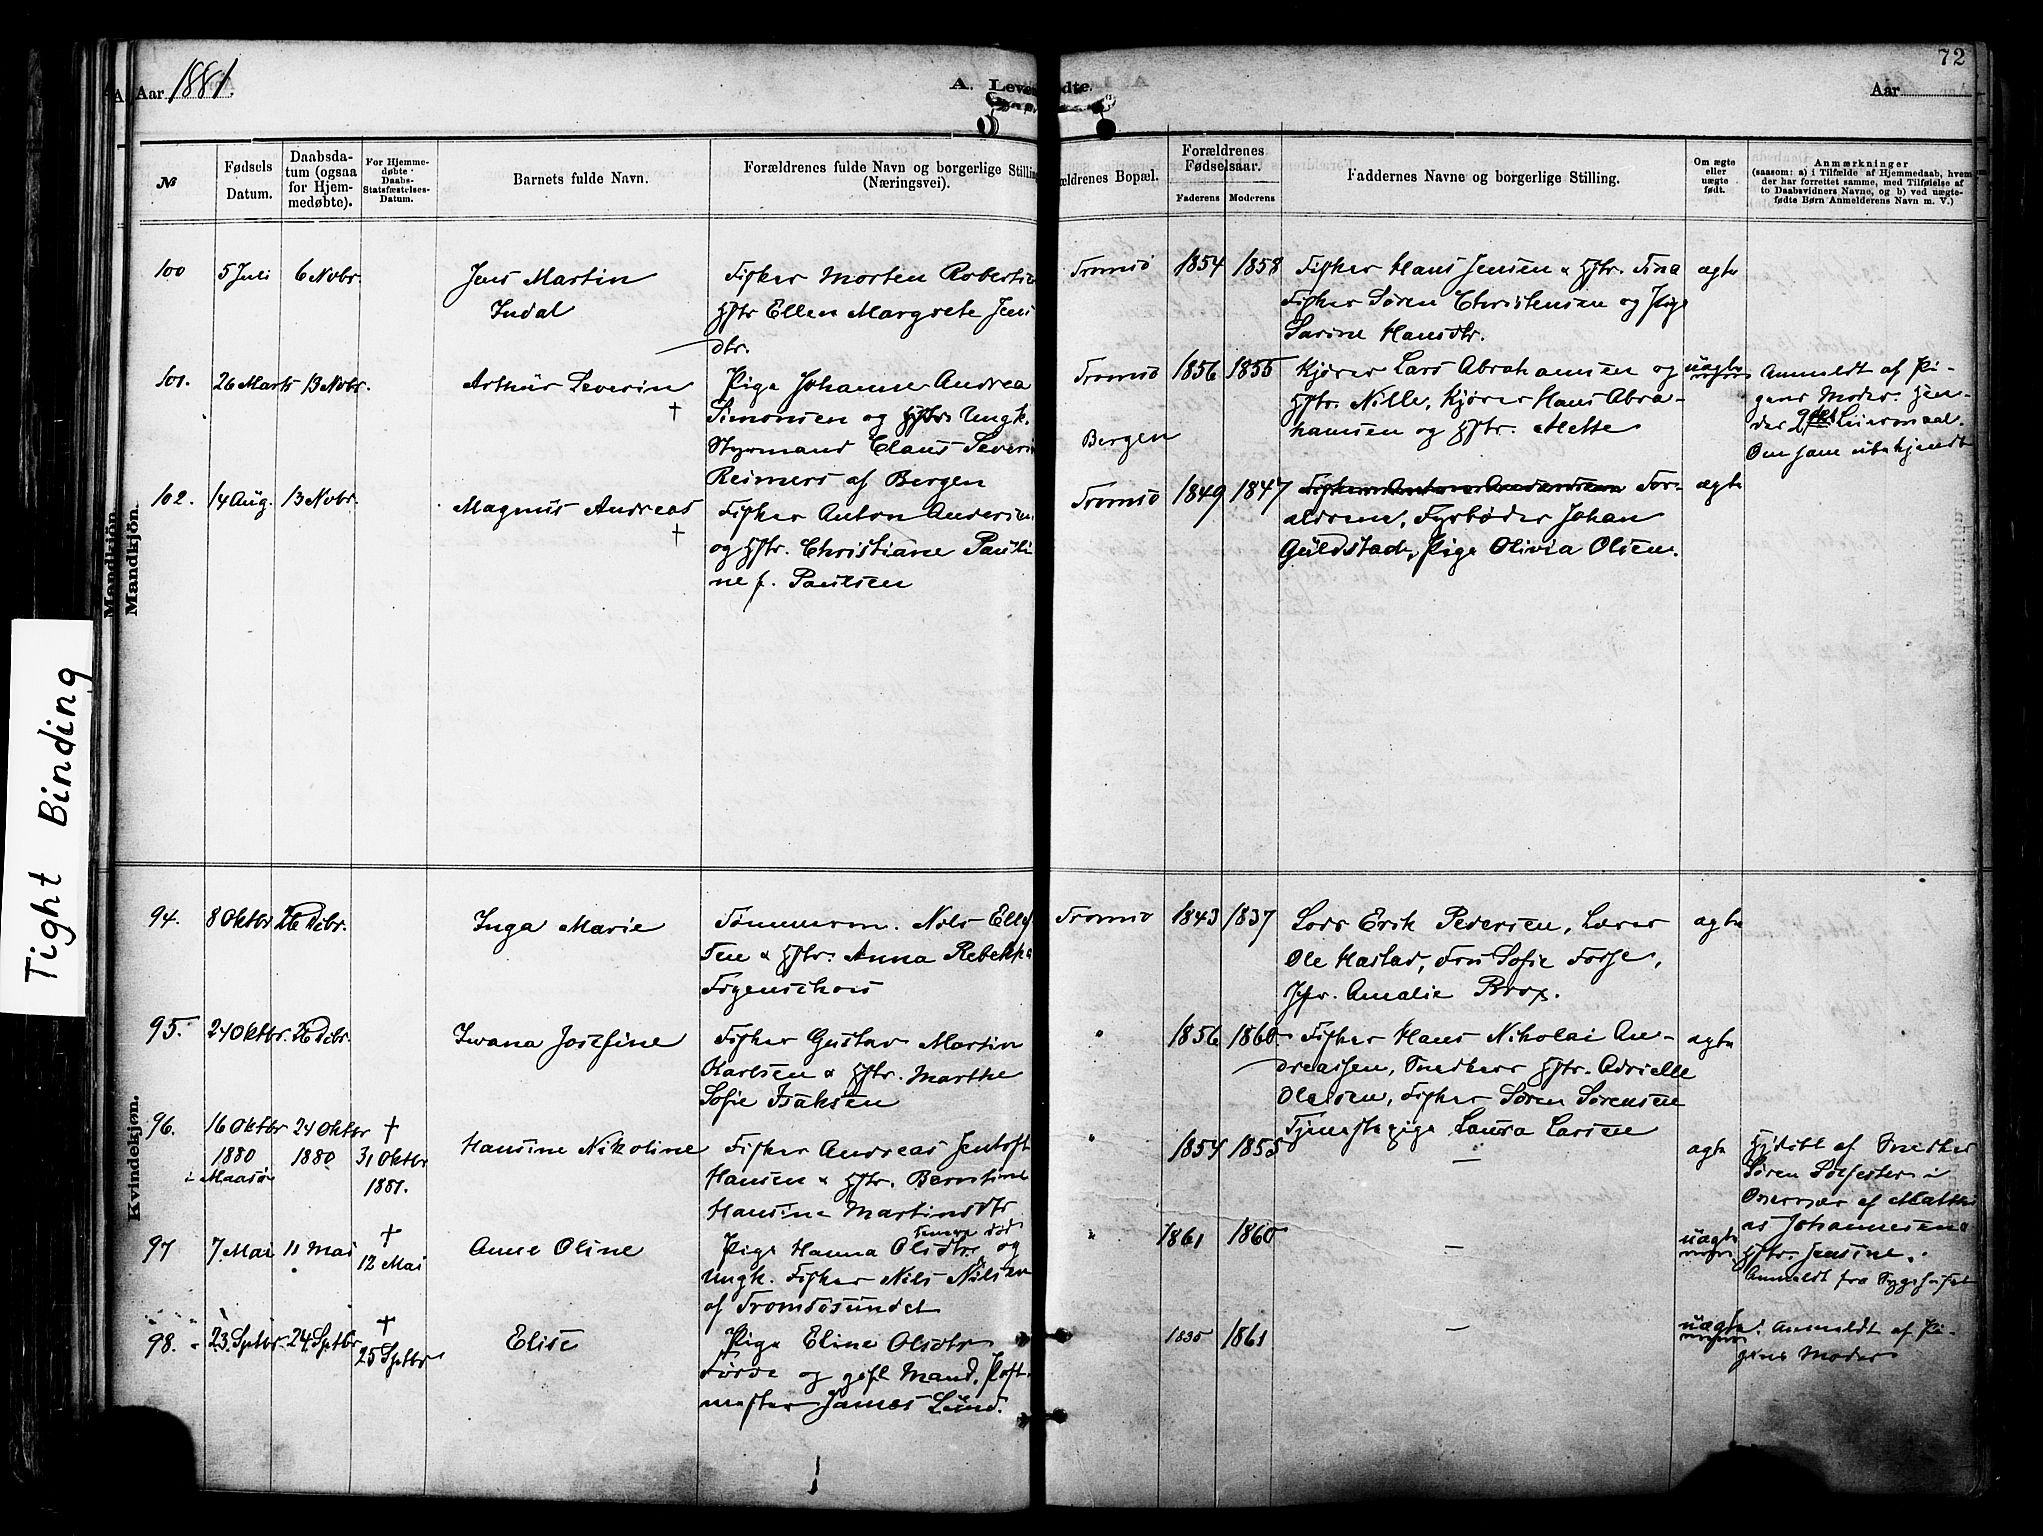 72
Aar 1881.
A. Levendefødte.
Aar
№
Fødsels Datum.
Daabsda-
tum (ogsaa
for Hjem-
medøbte).
For Hjemme-
døbte
Daabs-
Stadfæstelses-
Datum.
Barnets fulde Navn.
Forældrenes fulde Navn og borgerlige Stilling
(Næringsvei).
Forældrenes Bopæl.
Forældrenes
Fødselsaar.
Faderens
Moderens
Faddernes Navne og borgerlige Stilling.
Om ægte
eller
uægte
født.
Anmærkninger
(saasom: a) i Tilfælde af Hjemmedaab, hvem
der har forrettet samme, med Tilføielse af
to Daabsvidners Navne, og b) ved uægte-
fødte Børn Anmelderens Navn m. V.)
Mandkjøn.
Mandkjøn.
Tight Binding
100 5 Juli 6 Novbr. Jens Martin
Indal
Fisker Morten Roberts
Hstr Ellen Margrete Jens
dtr.
Tromsø 1854 1858
Fisker Hans Jensen & Hstr. Tina
Fisker Søren Christensen og Pige
Sarine Hansdtr.
ægte
101. 26 Marts 13 Novbr. Arthur Severin †
Pige Johanne Andrea
Simonsen og Ungk.
Styrmand Claus Severin
Reimers af Bergen
Tromsø
Bergen
1856 1855
Kjører Lars Abrahamsen og
Hstr. Nille, Kjører Hans Abra-
hamsen og Hstr. Mette
uægte
Anmeldt af Pi-
gens Moder.
2det Leiermaal.
102. 14 Aug. 13 Novbr. Magnus Andreas †
Fisker Anton Andersen
og Hstr. Christiane Pauli-
ne f. Paulsen
Tromsø 1849 1847
For-
ældrene, Fyrbøder Johan
Guldstad, Pige Olivia Olsen.
ægte
Kvindekjøn.
94. 8 Oktbr 26 Dcbr. Inga Marie
Tømmerm. Nils
& Hstr. Anna Rebekka
Fogenschou
Tromsø 1843 1837
Lods Erik Pedersen, Lærer
Ole Hastad, Fru Sofie Fosse,
Jfr. Amalie Brox.
ægte
95. 24 Oktbr. 26 Dcbr. Iwana Josefine
Fisker Gustav Martin
Karlsen & Hstr. Marthe
Sofie Isaksen
1856 1860
Fisker Hans Nikolai An-
dreassen, Snedkers Hstr. Adrielle
Olessen, Fisker Søren Sørensen
Tjenestepige Laura Larsen
ægte
96. 16 Oktbr
1880
i Maasø
24 Oktbr
1880
†
31 Oktbr
1881.
Hansine Nikoline
Fisker Andreas Jentoft
Hansen & Hstr. Berntine
Hansine Martinsdtr
1854 1855 —
ægte
Hjdøbt af Snedker
Søren Sølfester i
af Matthi
as Johannesen &
Hstr. Jensine.
97 7. Mai 11 Mai †
12 Mai
Anne Oline
Pige Hanna Olsdtr. og
Ungk. Fisker Nils Nilsen
af Tromsøsundet
1861 1860 —
uægte
Anmeldt fra Sygehuset
98. 23. Sptbr. 24. Sptbr. †
25 Sptbr
Elise
Pige Eline Olsdtr
Førde og gift Mand, Post-
mester James Lund.
1835 1861 —
uægte
Anmeldt af Pi-
gens Moder